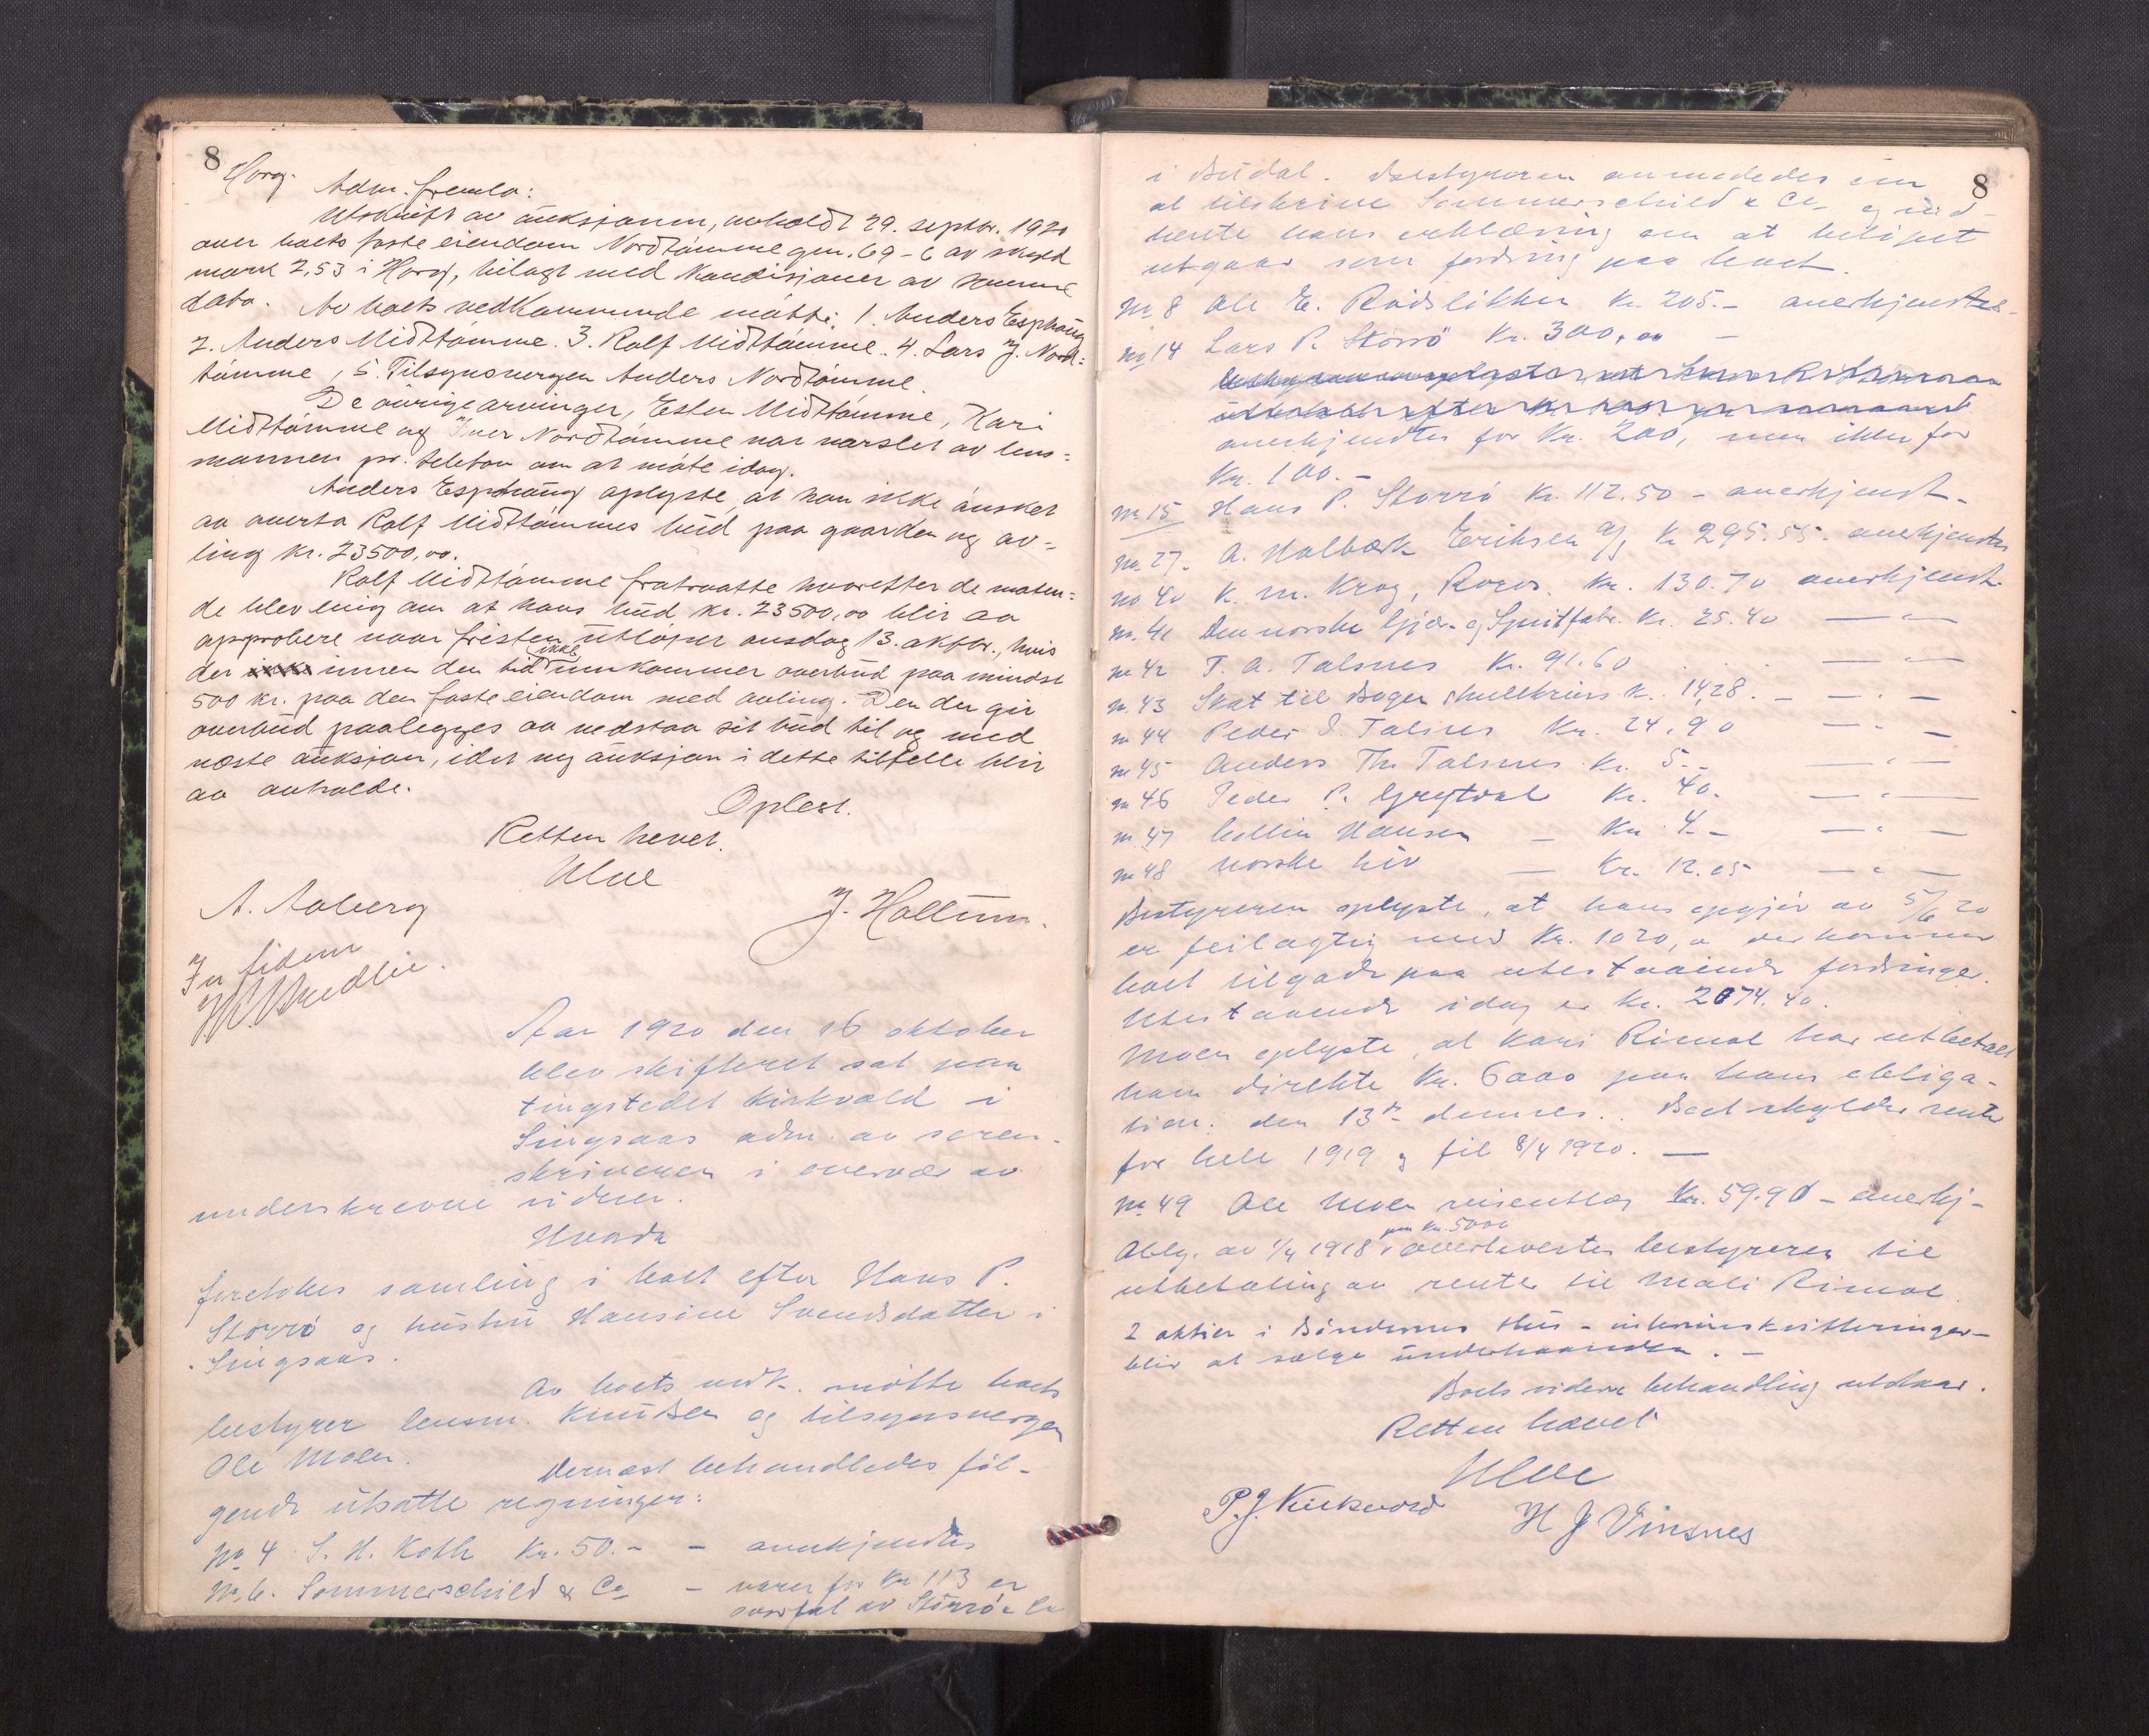 8
Horg.
Adm. fremla:
Utskrift av auksjonen, avholdt 29. septbr. 1920
over boets faste eiendom Nordtømme gnr. 69-6 av skyld
mark 2,53 i Horg, bilagt med Kondisjoner av samme
dato. Av boets vedkommende møtte: 1. Anders Esphaug
2. Anders Midttømme. 3. Rolf Midttømme. 4. Lars J. Nord=
tømme, 5. Tilsynsvergen Anders Nordtømme.
De øvrige arvinger, Esten Midttømme, Kari
Midttømme og Iver Nordtømme var varslet av lens=
mannen pr. telefon om at møte idag.
Anders Esphaug oplyste, at han ikke ønsket
aa overta Rolf Midttømmes bud paa gaarden og av=
ling kr. 23500,00.
Rolf Midttømme fratraatte hvoretter de møten=
de blev enig om at hans bud kr. 23500,00 blir aa
approbere naar fristen utløper onsdag 13. oktbr., hvis
der innen den tid ikke innkommer overbud paa mindst
500 kr. paa den faste eiendom med avling. Den der gir
overbud paalegges aa vedstaa sit bud til og med
næste auksjon, idet ny auksjon i dette tilfelle blir
aa avholde.
Oplest.
Retten hevet.
Ulve
A. Aaberg
J. Hollum.
In fidem
Aar 1920 den 16 oktober
blev skifteret sat paa
tingstedet Kirkvold i
Singsaas adm. av soren-
skriveren i overvær av
underskrevne vidner.
Hvorda
foretokes samling i boet efter Hans P.
Storrø og hustru Hansine Svendsdatter i
Singsaas.
Av boets vedk. møtte boets
bestyrer lensm. Knutsen og tilsynsvergen
Ole Moen.
Dernæst behandledes føl-
gende utsatte regninger:
No 4 S. H. Koth Kr. 50.- - anerkjendtes
No 6. Sommerschield & Co - varer for Kr 113 er
Storrø & Co
8
i Budal. Bostyreren anmodedes om
at tilskrive Sommerschield & Co og ind-
hente hans erklæring om at beløpet
utgaar som fordring paa boet.
No 8 Ole E. Rødslikken Kr. 205.- anerkjendtes
No 14 Lars P. Storrø Kr. 300,00 -
anerkjendtes for Kr. 200, men ikke for
Kr. 100.-
No 15 Hans P. Storrø Kr. 112.50 - anerkjendt-
No 27. A. Holbæk Eriksen A/S Kr 295.55. anerkjendtes
No 40 K. M. Krog, Røros. Kr. 130.70 anerkjendt.
No. 41 Den norske Gjær- og Spritfabr. Kr. 25.40 — " —
No 42 T. A. Talsnes Kr. 91.60 — " —
No 43 Skat til Bogen skullbrus k. 14,28. - — " —
No 44 Peder I. Talsnes Kr. 24.90 — " —
No 45 Anders Th. Talsnes Kr. 5.- — " —
No 46 Peder P. Grytdal Kr. 40. — " —
No 47 Collin Hansen - Kr. 4.- — " —
No 48 Norske Liv - Kr. 12.05 — " —
Bestyreren oplyste, at hans opgjør av 5/6 20
er feilagtig med Kr. 1020, der kommer
boet tilgode paa utestaaende fordringer.
Utestaaende idag er kr. 2074.40.
Moen oplyste, at Kari Rimol har utbetalt
ham direkte Kr. 6000 paa hans obliga-
tion. den 13de dennes. Boet skylder rente
for hele 1919 og til 8/4 1920. —
No 49 Ole Moen reiseutlæg Kr. 59.90 - anerkj-
Oblg. av 1/4 1918 paa Kr. 5000 overleveres bestyreren til
utbetaling av rente til Mali Rimol.
2 aktier i Bøndernes Hus - interimskvitteringer-
blir at sælge underhaanden. -
Boets videre behandling utstaar.
Retten hævet
Ulve
P. J. Kirkvold
H J Vinsnes